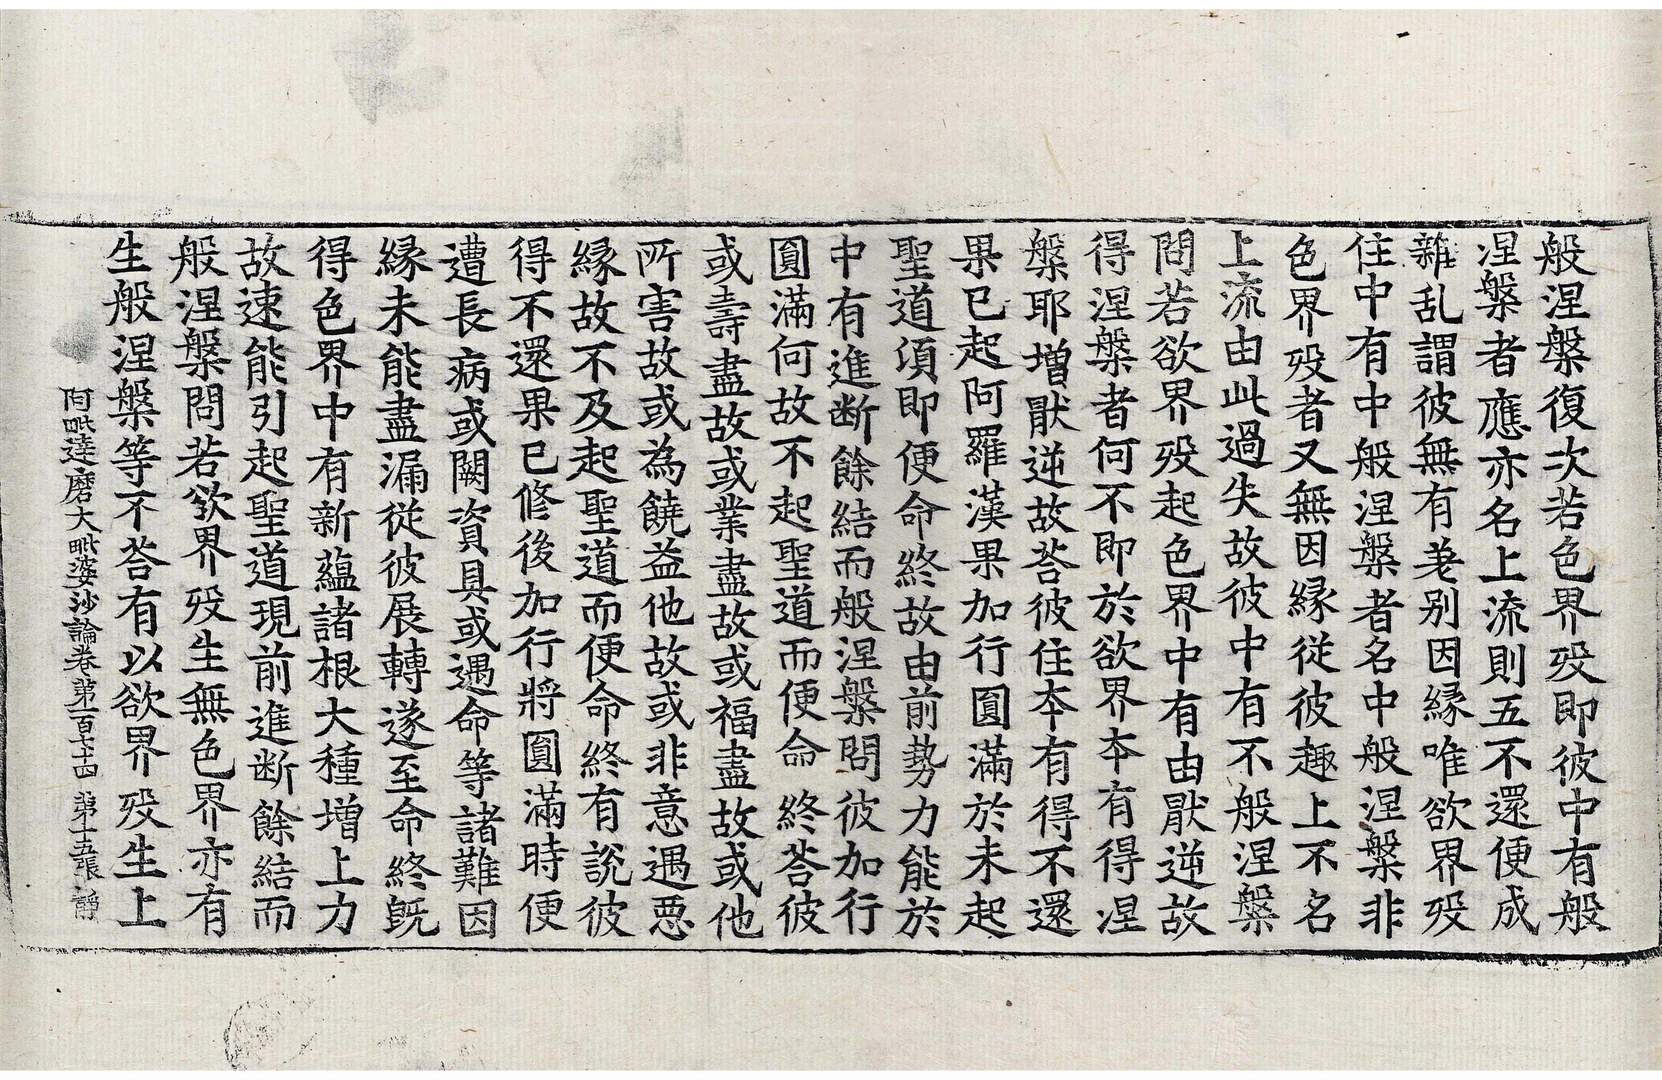 般涅槃復次若色界歿即彼中有般
涅槃者應亦名上流則五不還便成
雜乱謂彼無有差别因縁唯欲界歿
住中有中般涅槃者名中般涅槃非
色界歿者又無因縁從彼趣上不名
上流由此過失故彼中有不般涅槃
問若欲界歿起色界中有由猒逆故
得涅槃者何不即於欲界本有得涅
槃耶增猒逆故荅彼住本有得不還
果已起阿羅漢果加行圓滿於未起
聖道須即便命終故由前勢力能於
中有進断餘結而般涅槃問彼加行
圓滿何故不起聖道而便命終荅彼
或壽盡故或業盡故或福盡故或他
所害故或為饒益他故或非意遇惡
縁故不及起聖道而便命終有説彼
得不還果已修後加行將圓滿時便
遭長病或闕資具或遇命等諸難因
縁未能盡漏從彼展轉遂至命終既
得色界中有新蘊諸根大種增上力
故速能引起聖道現前進断餘結而
般涅槃問若欲界歿生無色界亦有
生般涅槃等不荅有以欲界歿生上
阿毗達磨大毗婆沙論卷第一百七十四 第十五張 靜